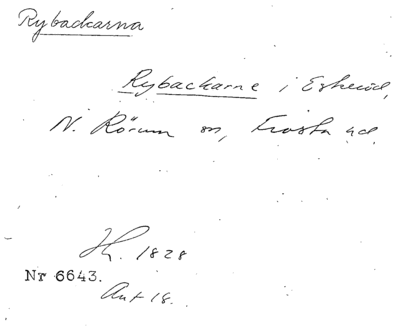 Rybackarna
Rybackarne i Eskeröd,
N. Rörum sn, Frosta hd.
H. 1828
Nr 6643.
Akt 18.